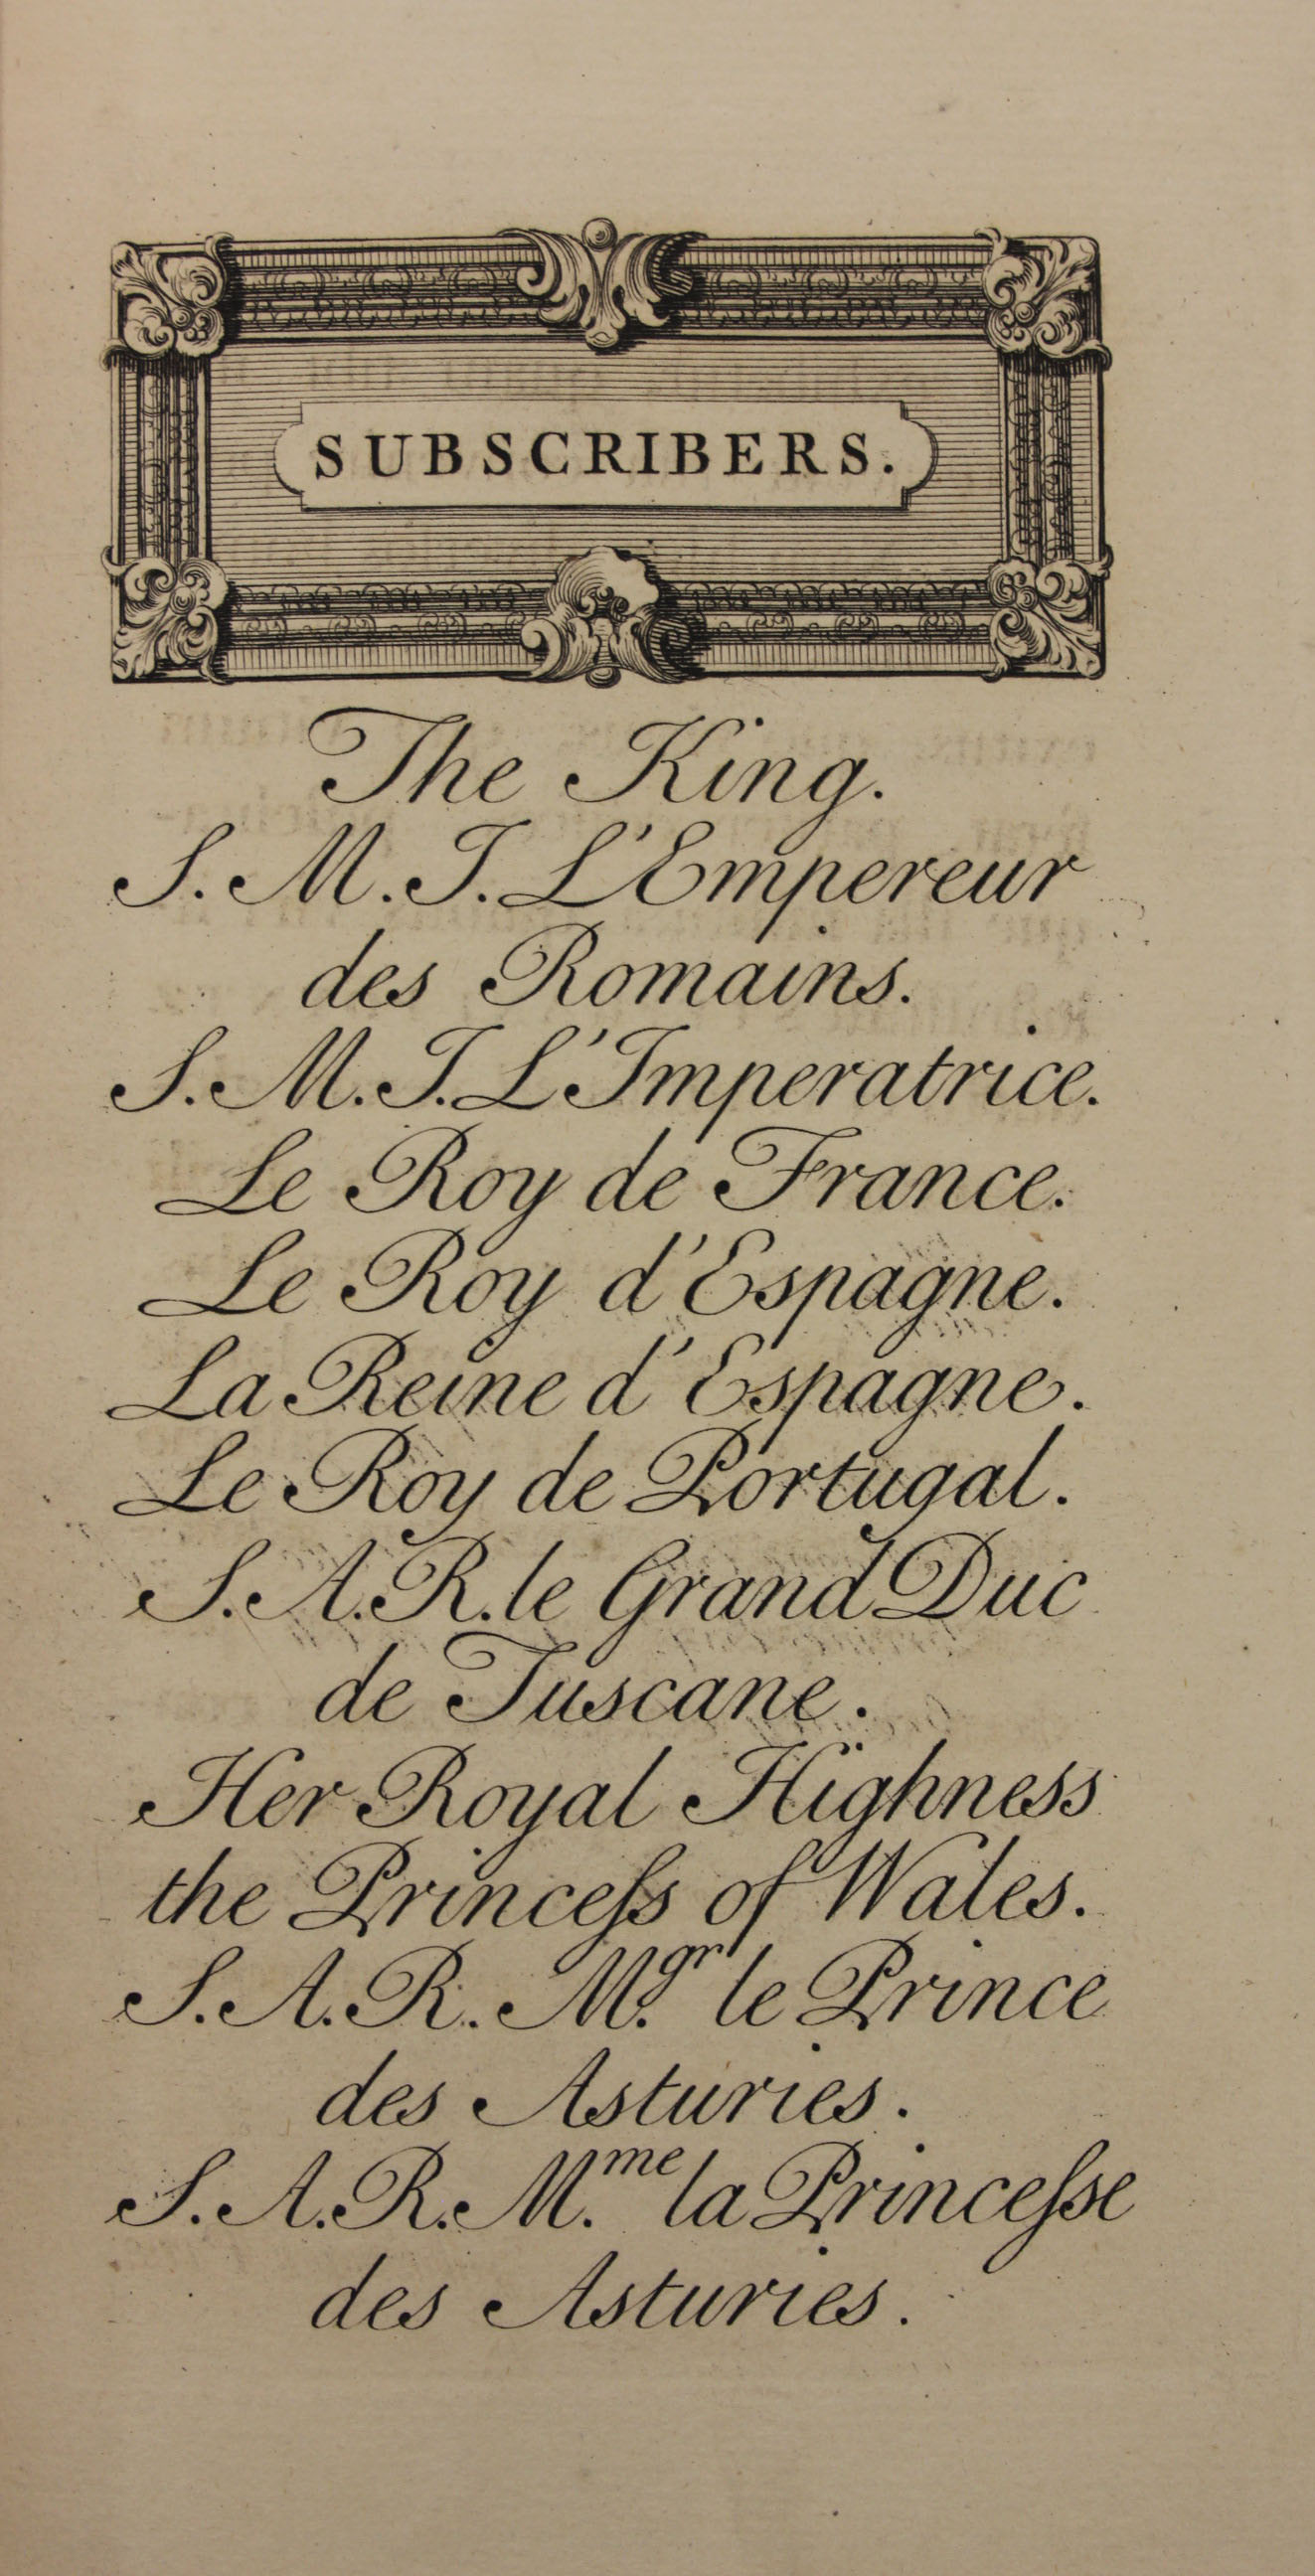 SUBSCRIBERS.
The King.
S. M. I. L'Empereur
des Romains.
S. M. I. L'Imperatrice.
Le Roy de France.
Le Roy d'Espagne.
La Reine d'Espagne.
Le Roy de Portugal.
S. A. R. le Grand Duc
de Tuscane.
Her Royal Highness
the Princeſs of Wales.
S. A. R. M.gr le Prince
des Asturies.
S. A. R. M.me la Princeſse
des Asturies.